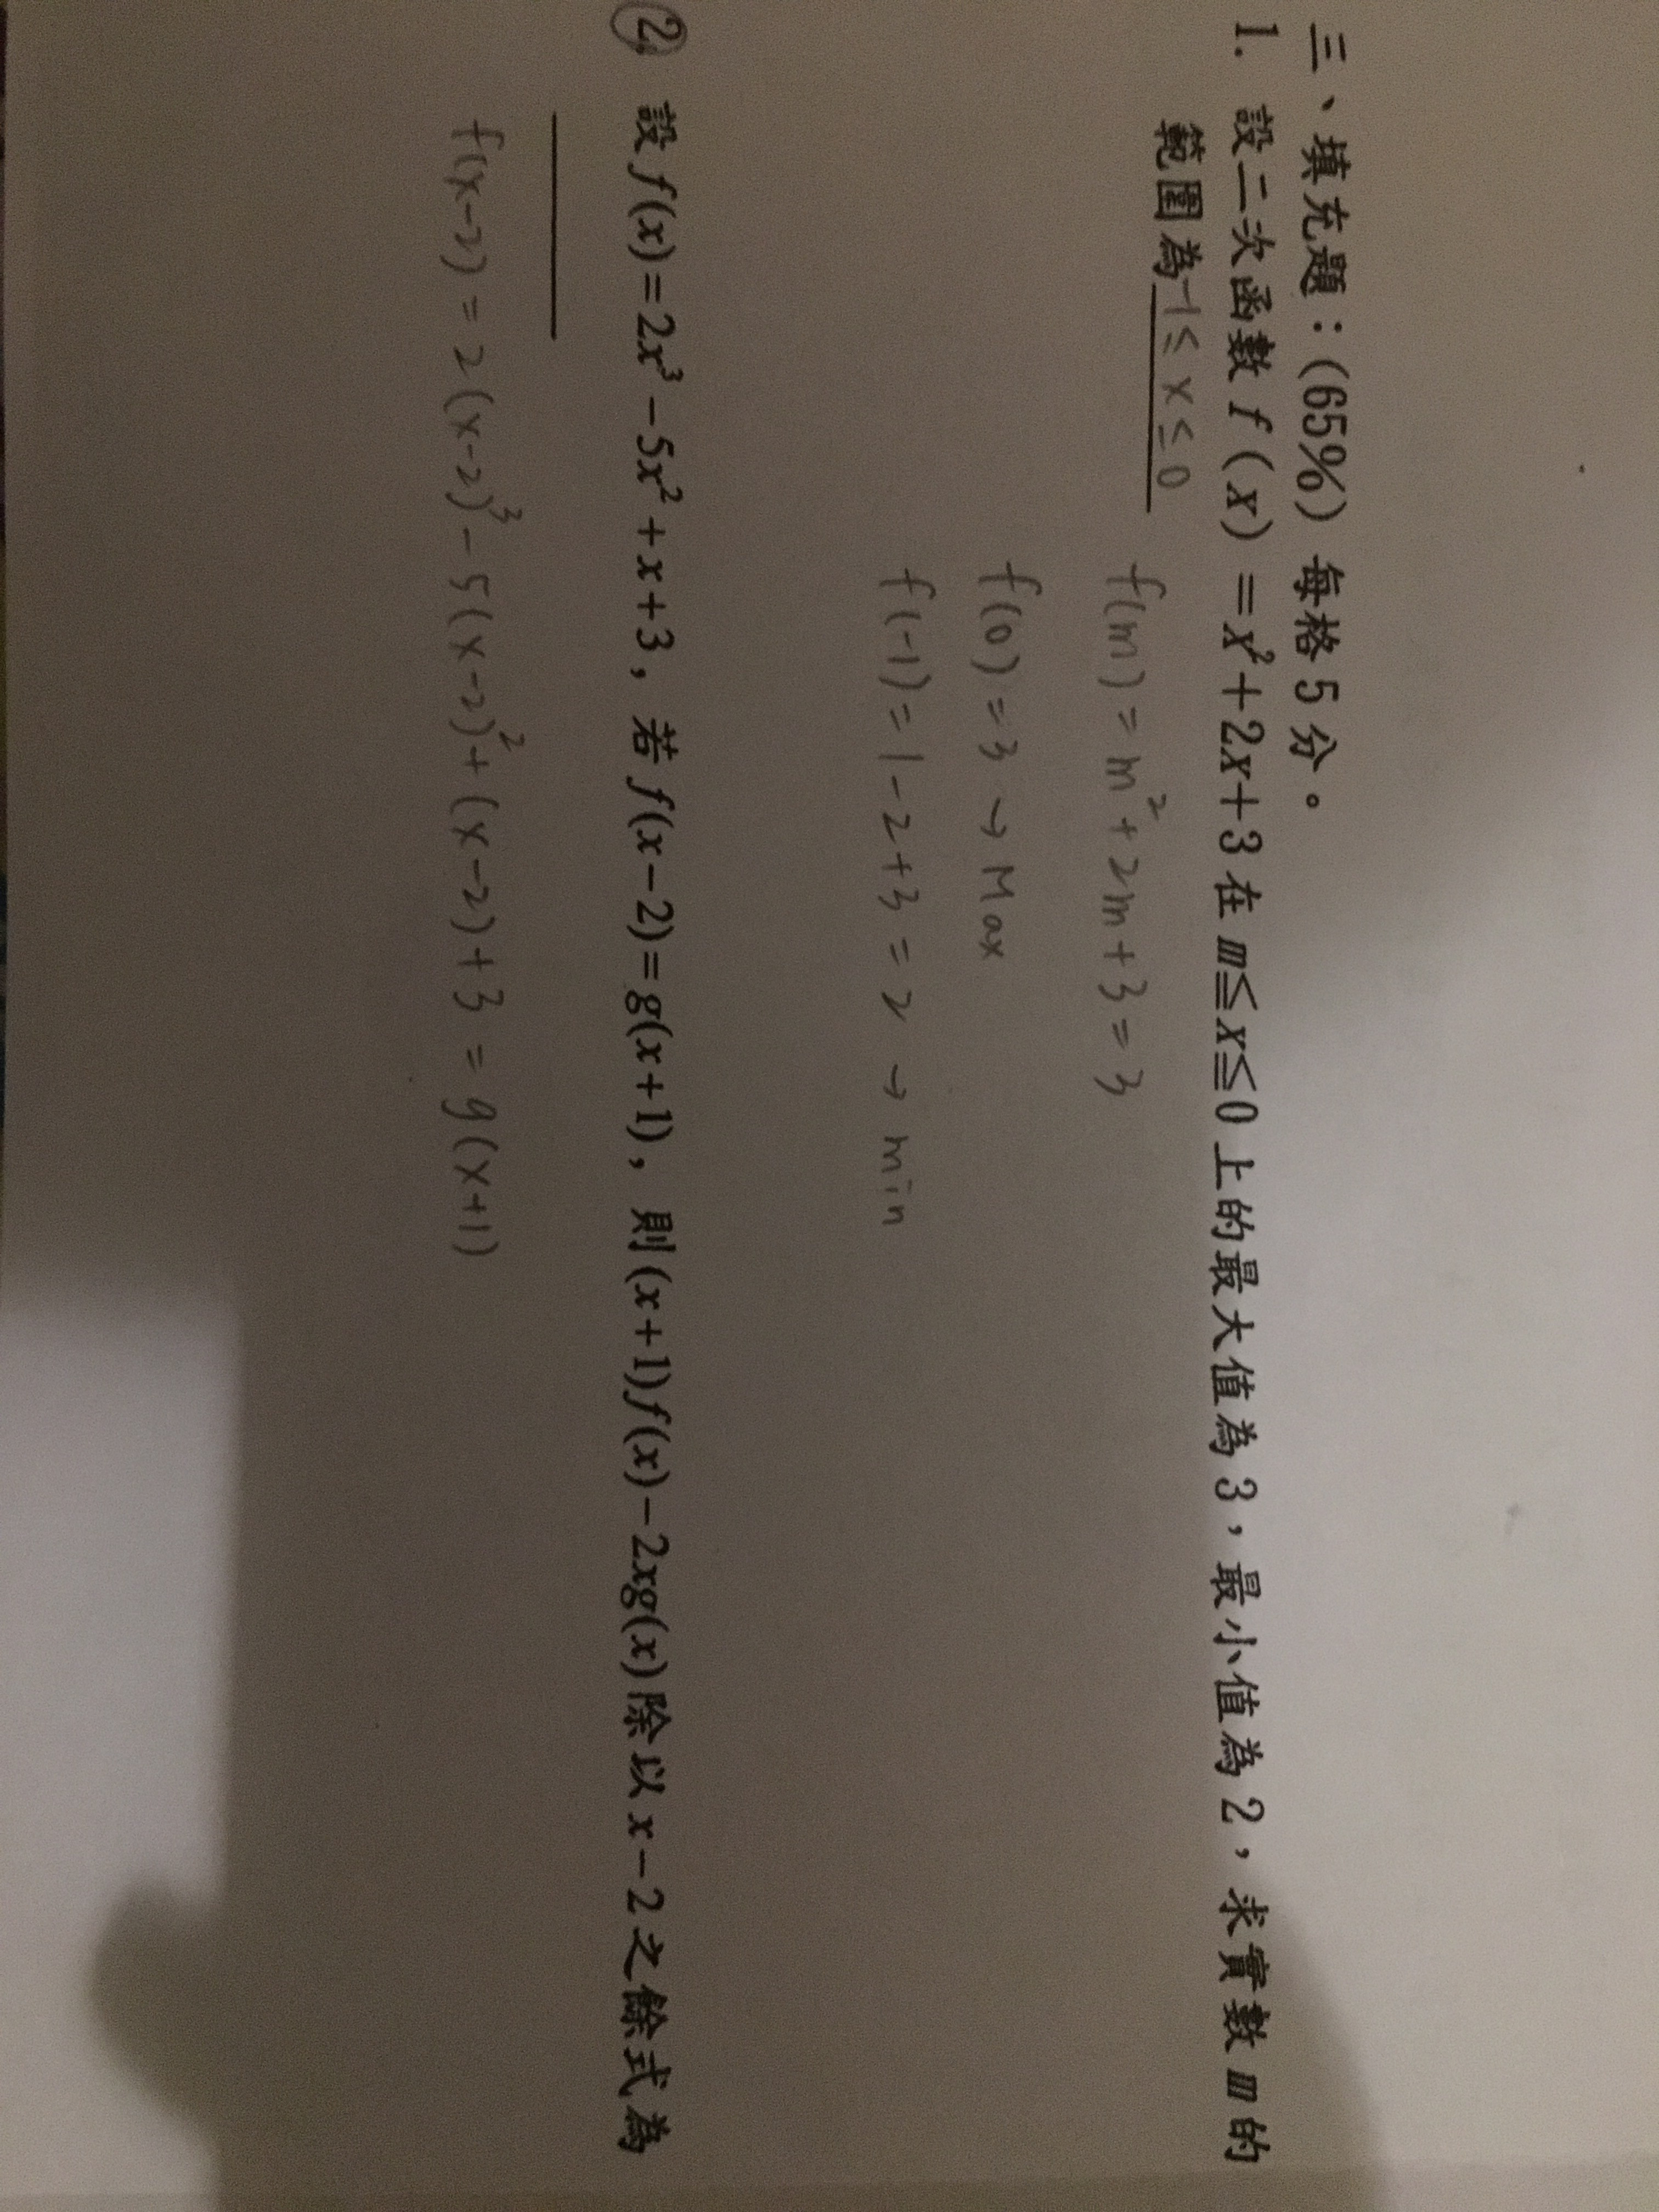 三、填充題：(65%) 每格5分。
1. 設二次函數 f(x)=x²+2x+3 在 m≦x≦0 上的最大值為3，最小值為2，求實數 m 的
範圍為 -1≤x≤0
f(m)=m²+2m+3=3
f(0)=3→Max
f(-1)=1-2+3=2→min
2. 設 f(x)=2x³-5x²+x+3，若 f(x-2)=g(x+1)，則(x+1)f(x)-2xg(x)除以 x-2 之餘式為
f(x-2)=2(x-2)³-5(x-2)²+(x-2)+3=g(x+1)